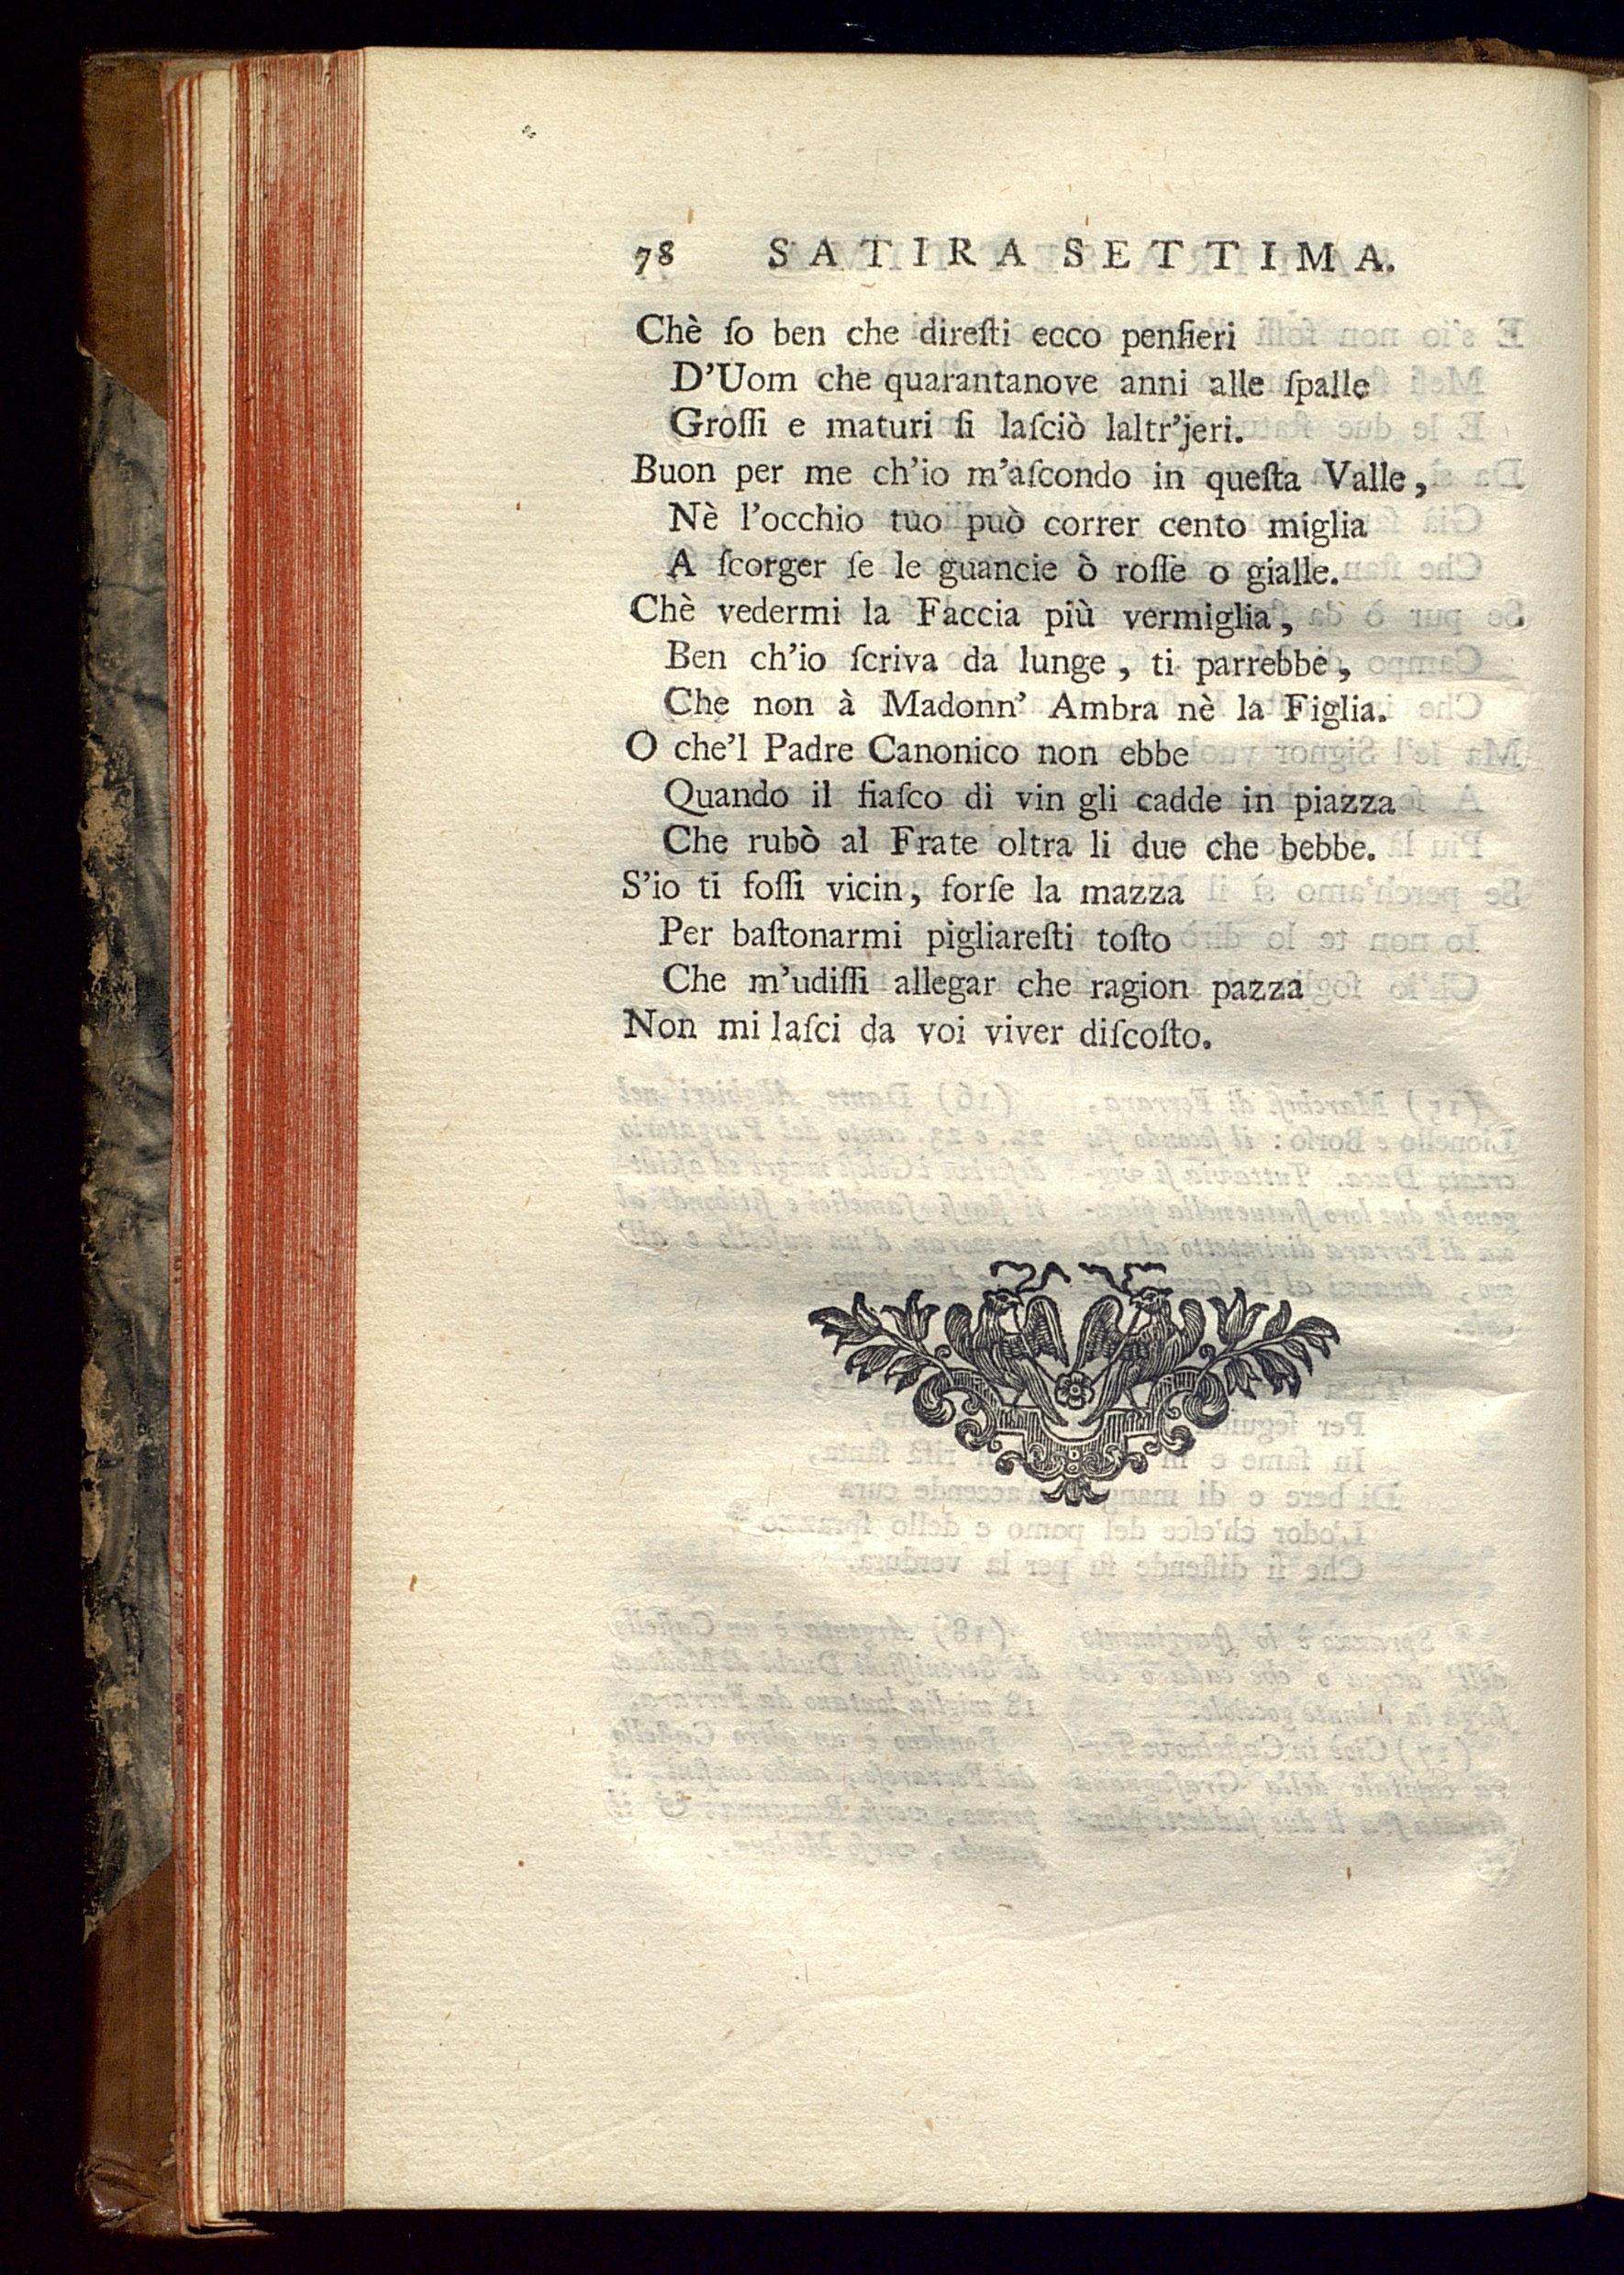 78 SATIRA SETTIMA.
Chè ſo ben che direſti ecco penſieri
D'Uom che quarantanove anni alle ſpalle
Groſſi e maturi ſi laſciò laltr'jeri.
Buon per me ch'io m'aſcondo in queſta Valle,
Nè l'occhio tuo può correr cento miglia
A ſcorger ſe le guancie ò roſſe o gialle.
Chè vedermi la Faccia più vermiglia,
Ben ch'io ſcriva da lunge, ti parrebbe,
Che non à Madonn' Ambra nè la Figlia.
O che'l Padre Canonico non ebbe
Quando il fiaſco di vin gli cadde in piazza
Che rubò al Frate oltra li due che bebbe.
S'io ti foſſi vicin, forſe la mazza
Per baſtonarmi pigliareſti toſto
Che m'udiſſi allegar che ragion pazza
Non mi laſci da voi viver diſcoſto.